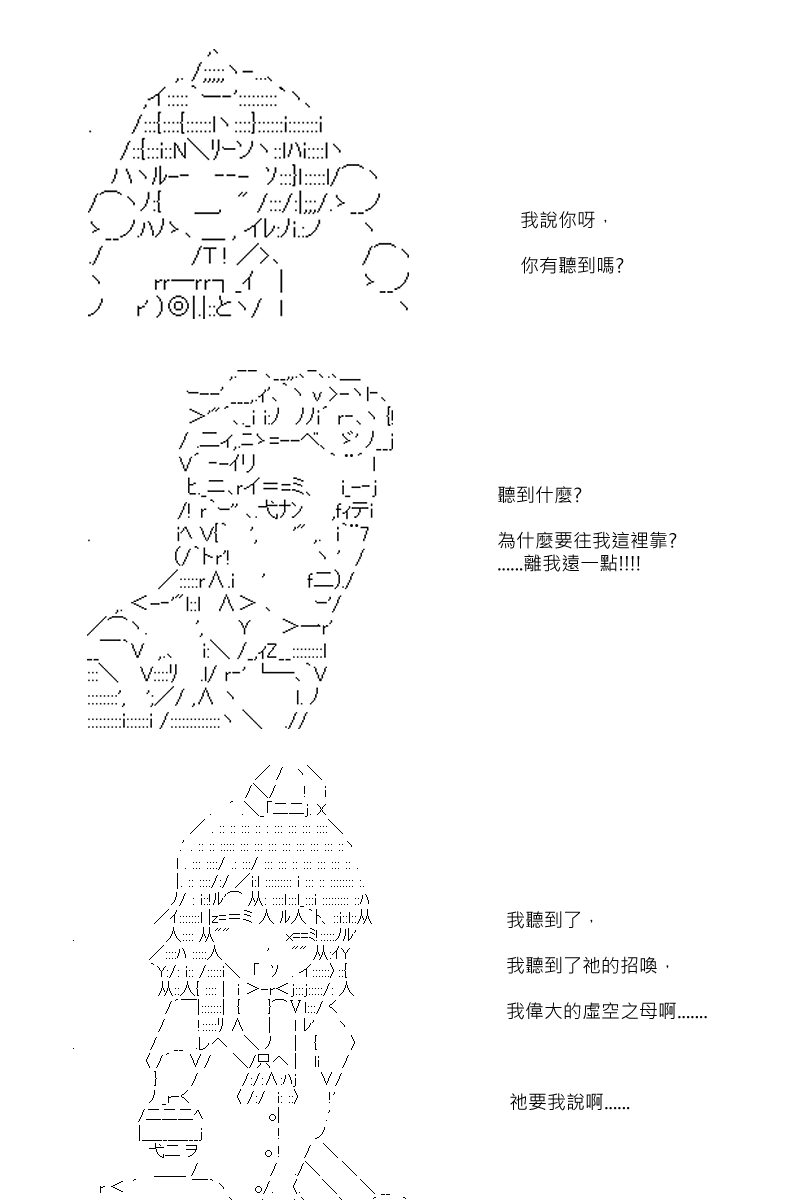 我說你呀，
你有聽到嗎?
聽到什麼?
為什麼要往我這裡靠?
......離我遠一點!!!!
我聽到了，
我聽到了祂的招喚，
我偉大的虛空之母啊.......
祂要我說啊......